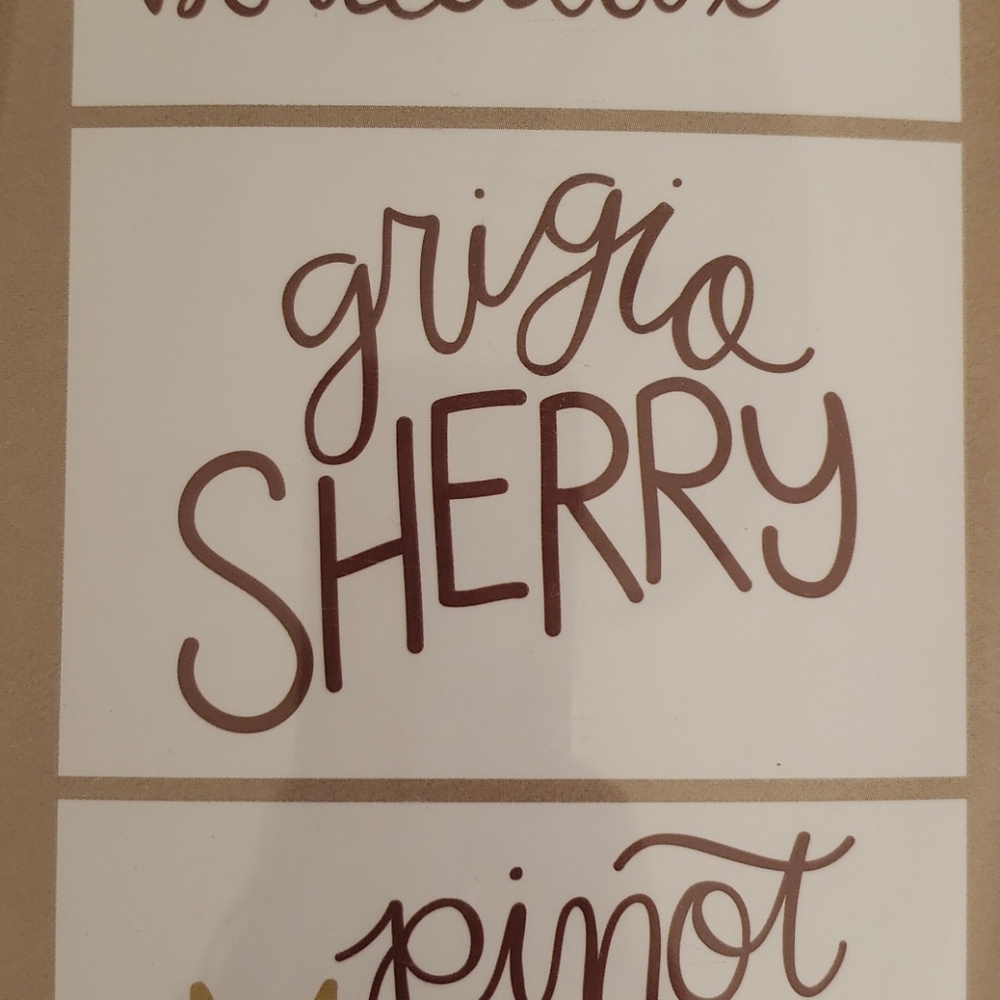 grigio
SHERRY
pinot